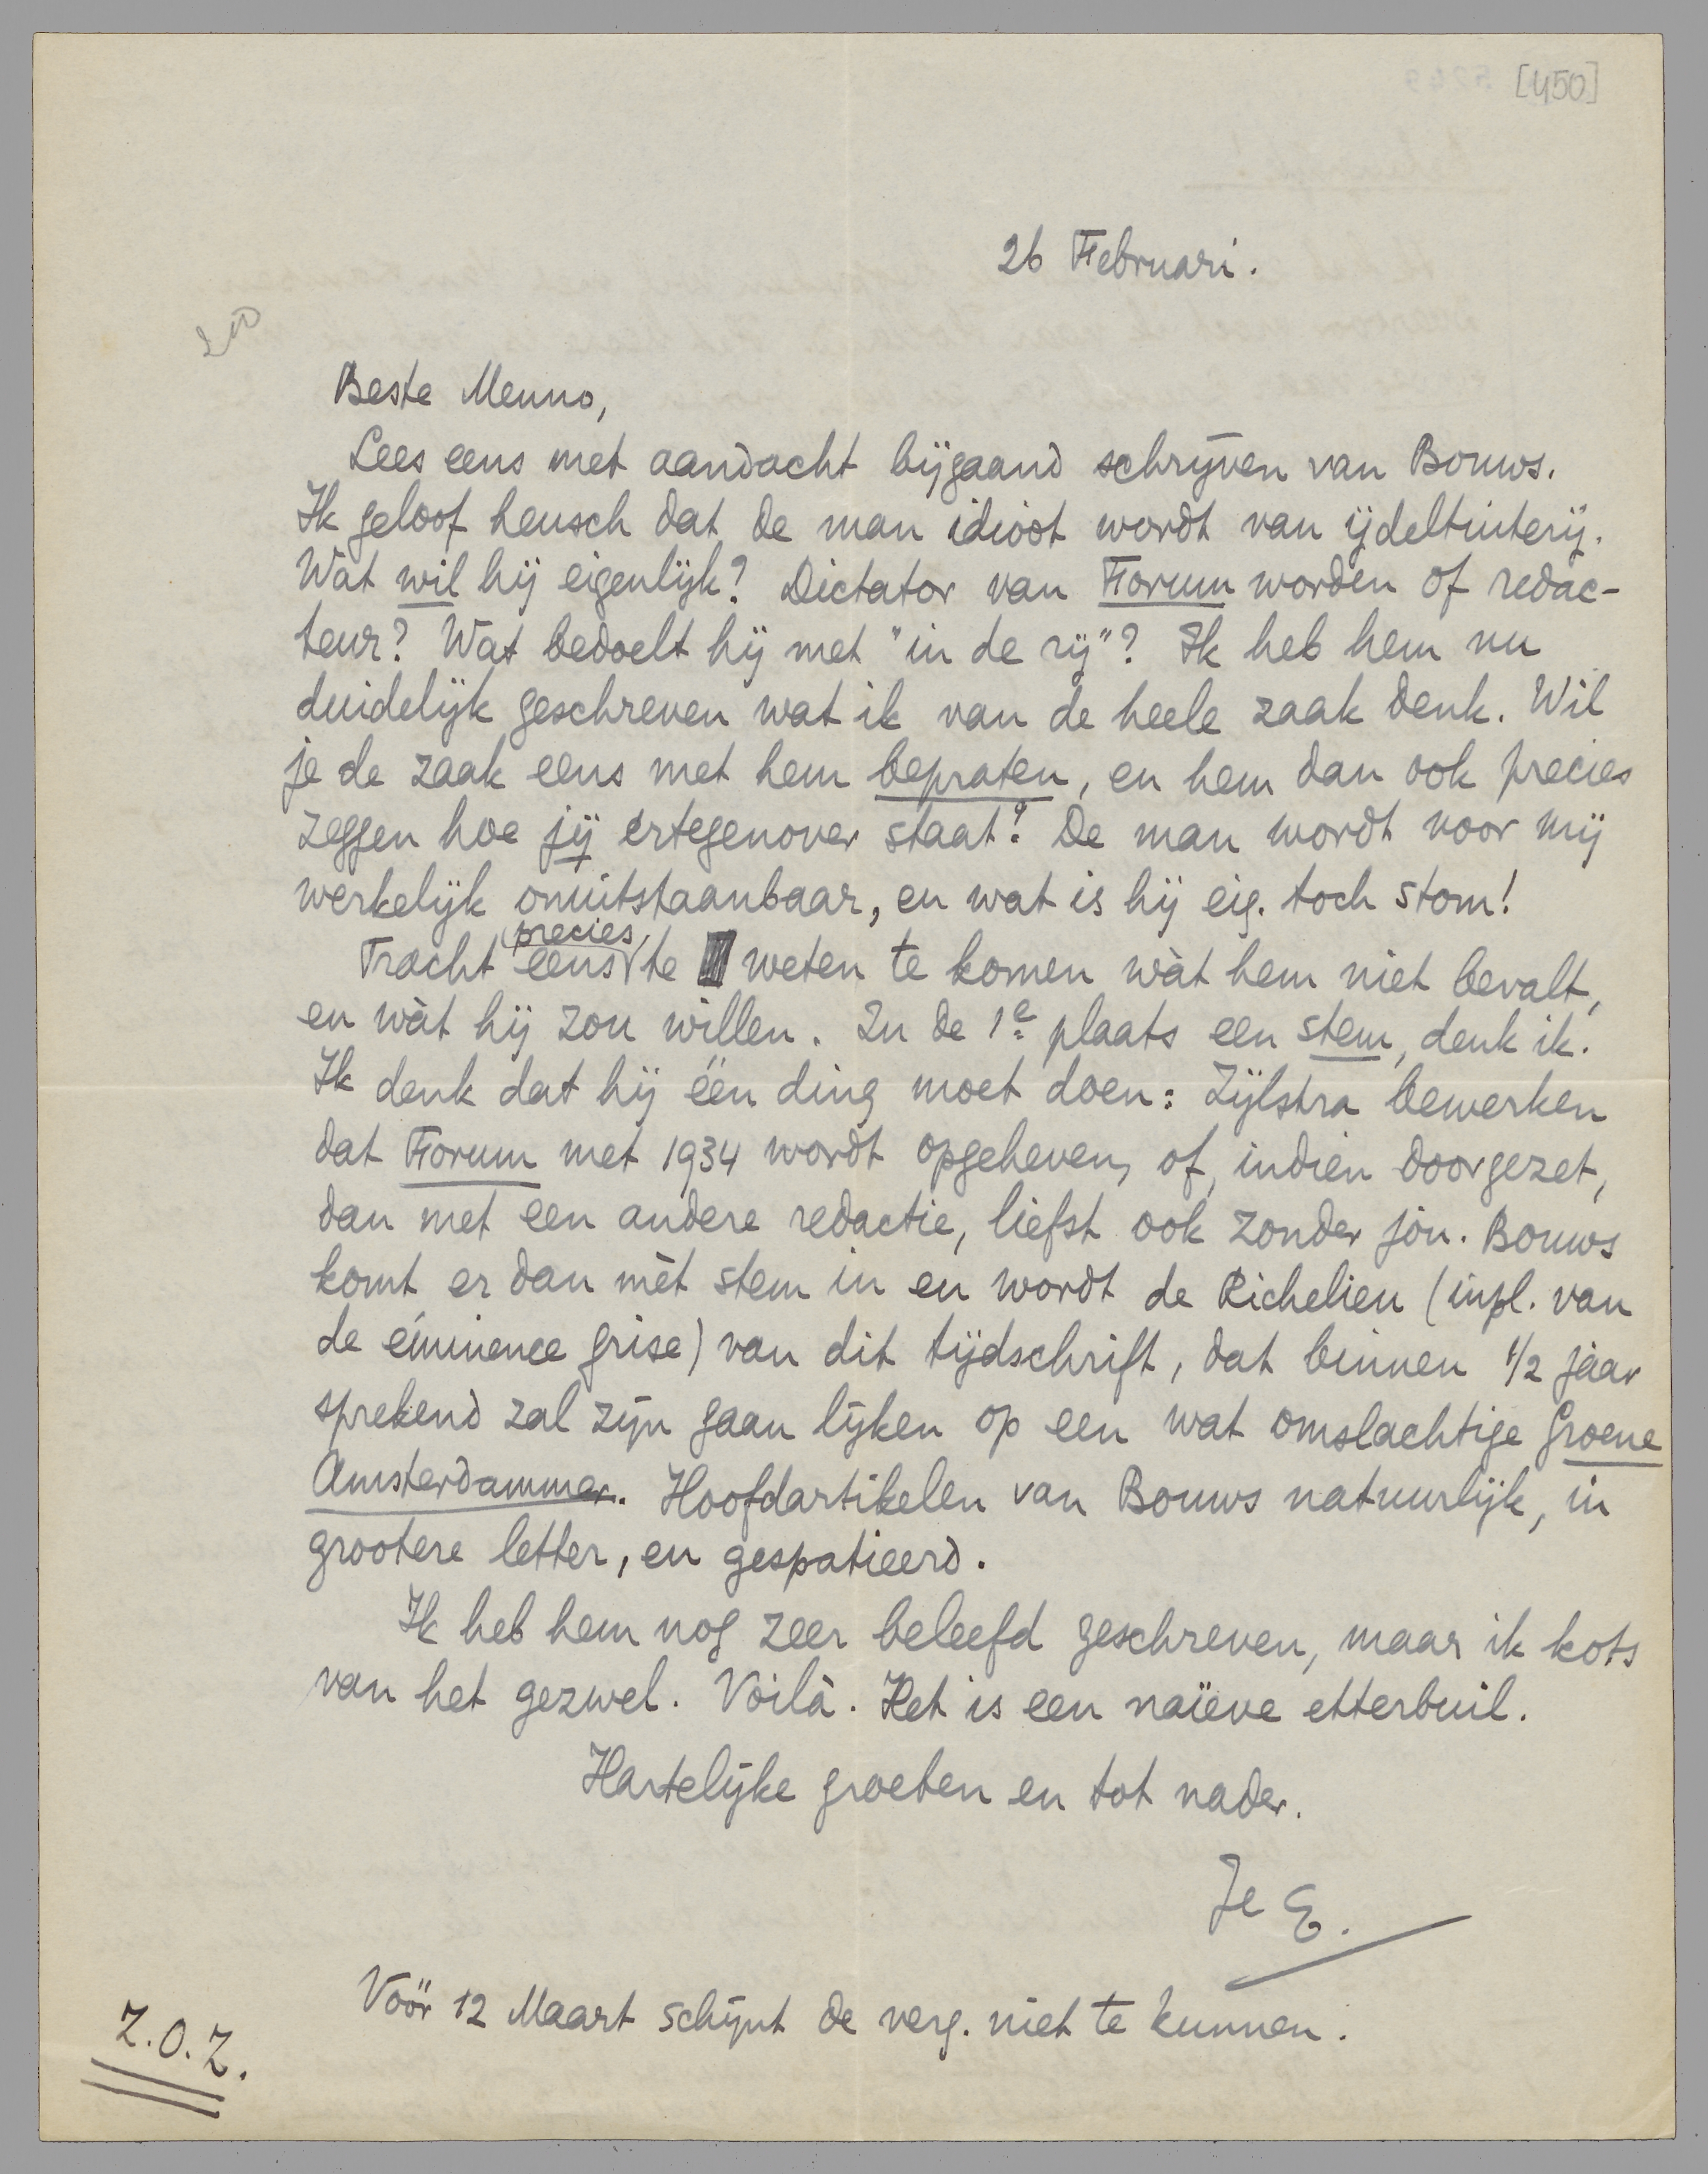 [450]
26 Februari.
Beste Menno,
Lees eens met aandacht bijgaand schrijven van Bouws.
Ik geloof heusch dat de man idioot wordt van ijdeltuiterij.
Wat wil hij eigenlijk? Dictator van Forum worden of redac-
teur? Wat bedoelt hij met "in de rij"? Ik heb hem nu
duidelijk geschreven wat ik van de heele zaak denk. Wil
je de zaak eens met hem bepraten, en hem dan ook precies
zeggen hoe jij ertegenover staat? De man wordt voor mij
werkelijk onuitstaanbaar, en wat is hij eig. toch stom!
Tracht eens precies te weten te komen wàt hem niet bevalt,
en wàt hij zou willen. In de 1e plaats een stem, denk ik.
Ik denk dat hij één ding moet doen: Zijlstra bewerken
dat Forum met 1934 wordt opgeheven, of, indien doorgezet,
dan met een andere redactie, liefst ook zonder jou. Bouws
komt er dan mèt stem in en wordt de Richelieu (inpl. van
de éminence grise) van dit tijdschrift, dat binnen 1/2 jaar
sprekend zal zijn gaan lijken op een wat omslachtige Groene
Amsterdammer. Hoofdartikelen van Bouws natuurlijk, in
grootere letter, en gespatieerd.
Ik heb hem nog zeer beleefd geschreven, maar ik kots
van het gezwel. Voilà. Het is een naïeve etterbuil.
Hartelijke groeten en tot nader.
Je E.
Vóór 12 Maart schijnt de verg. niet te kunnen.
Z.O.Z.